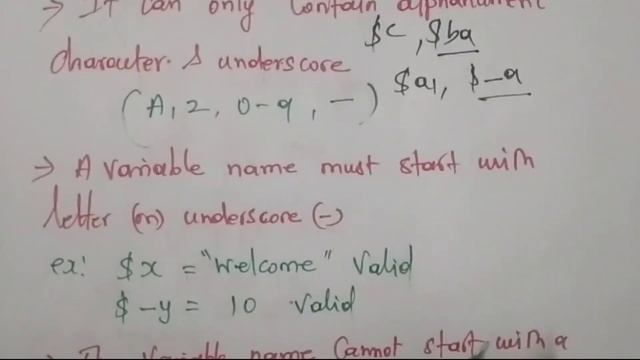 → It can only contain alphanumeric
character. & underscore $c, $ba
(A, Z, 0-9, _) $a1, $_a
→ A variable name must start with
letter (or) underscore (_)
ex: $x = "Welcome" Valid
$_y = 10 Valid
→ The variable name cannot start with a